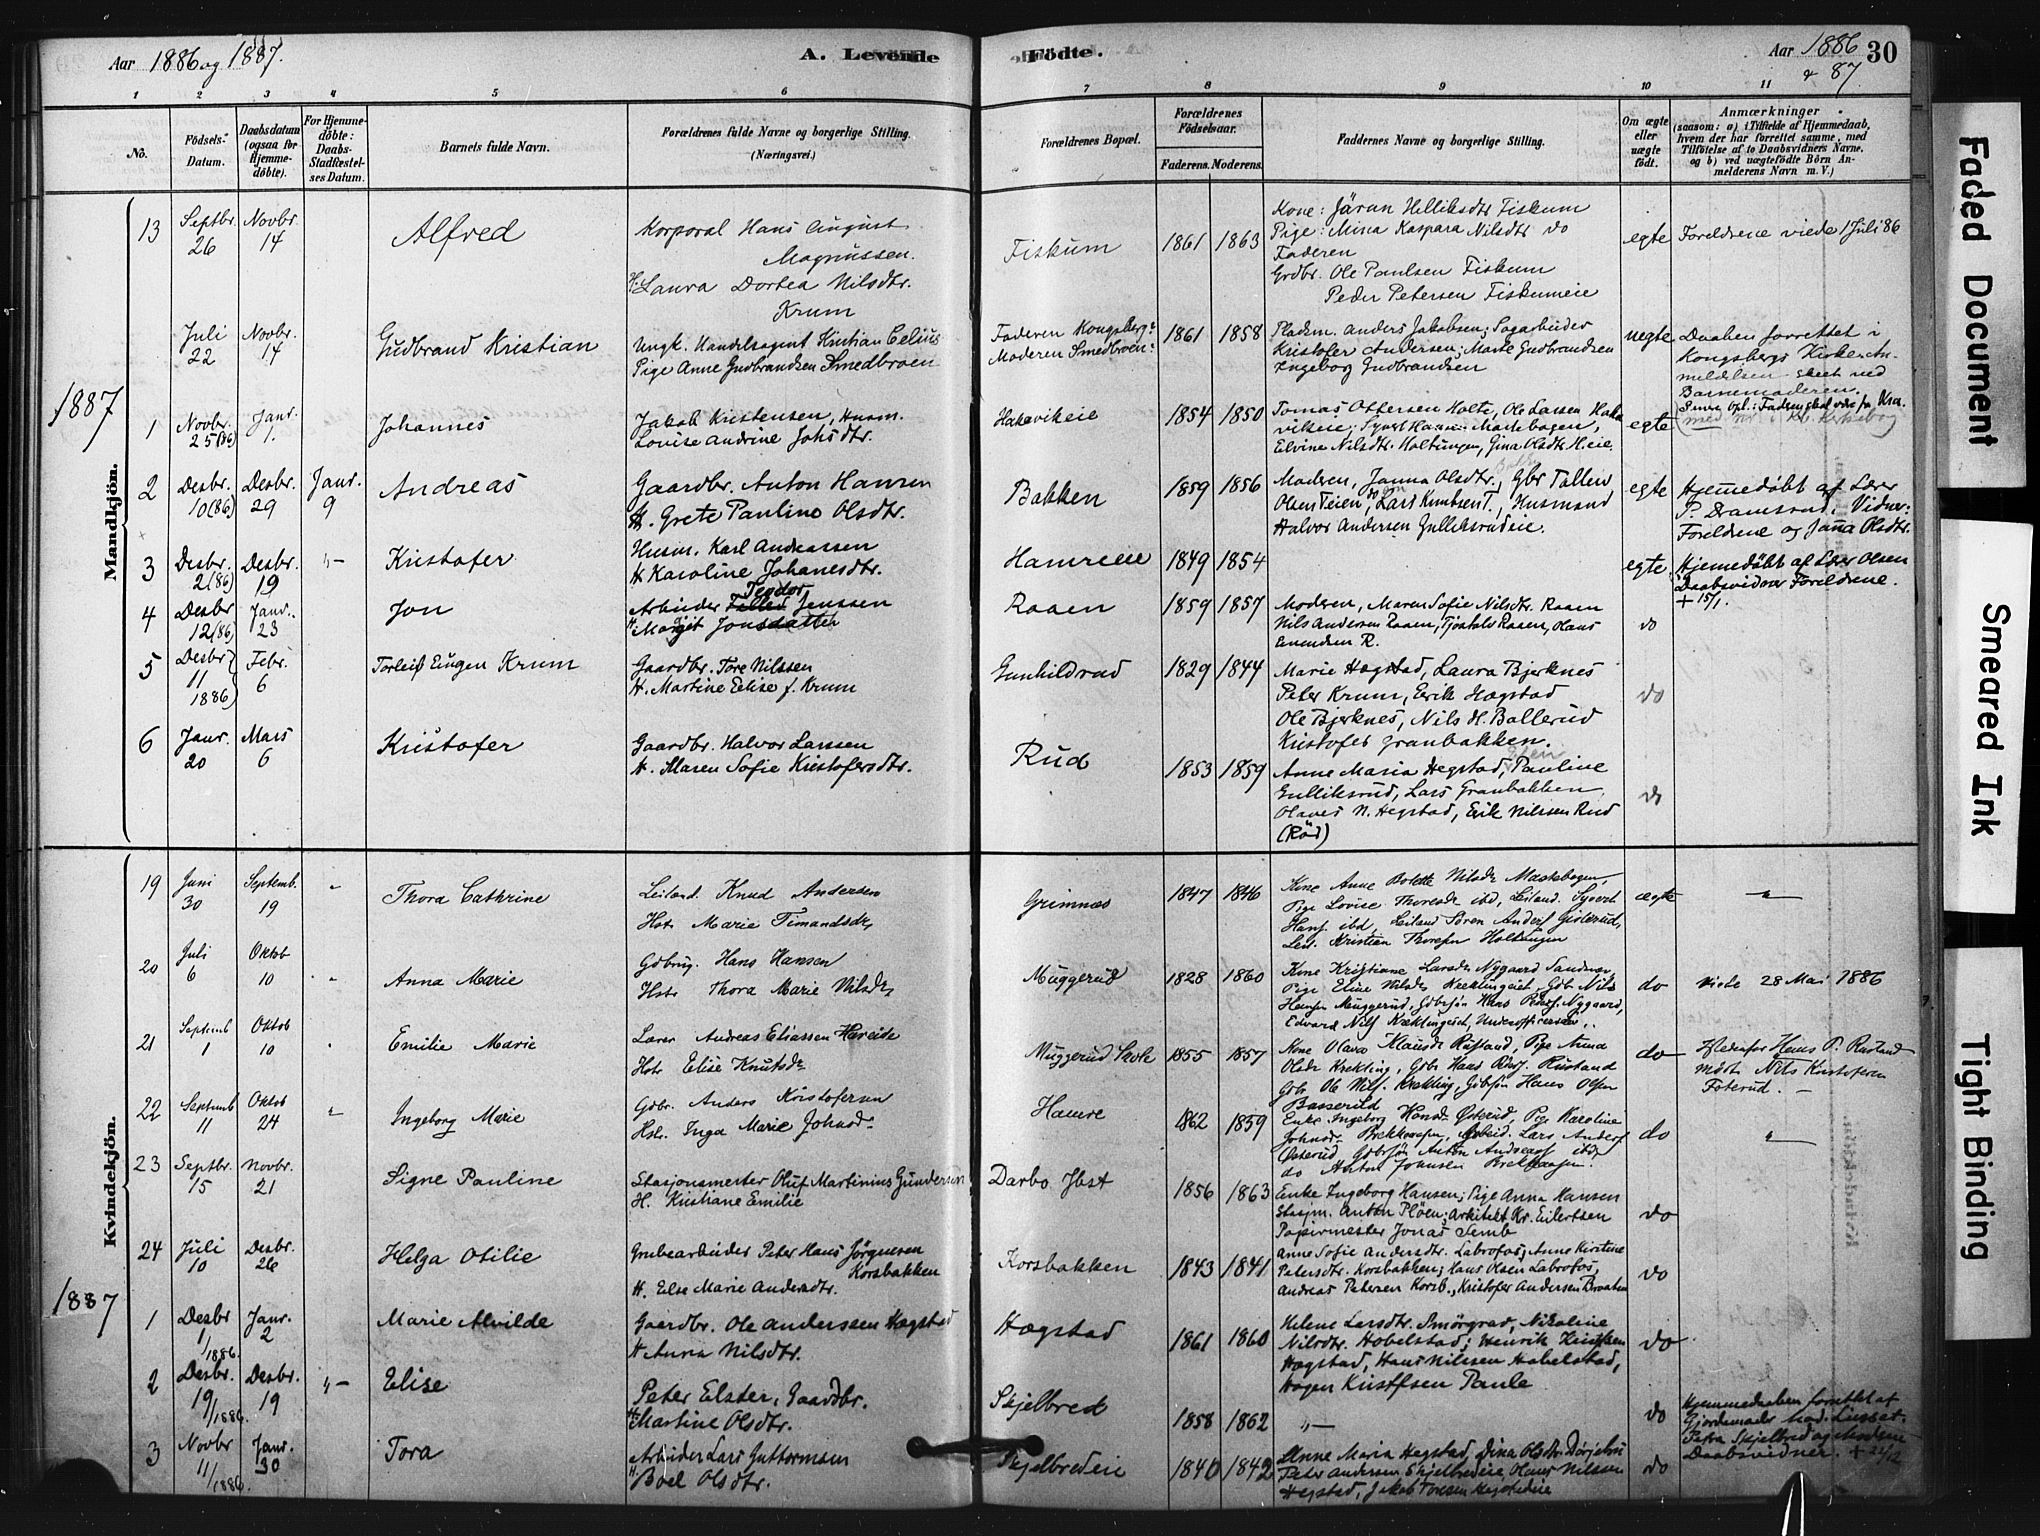 Aar 1886 og 1887.
A. Levende
Födte.
Aar 1886 & 87
30
1 2 3 4 5 6 7 8 9 10 11
No.
Födsels-Datum.
Daabsdatum (ogsaa for Hjemme-döbte).
For Hjemme-döbte: Daabs-Stadfæstel-ses Datum.
Barnets fulde Navn.
Forældrenes fulde Navne og borgerlige Stilling. (Næringsvei.)
Forældrenes Bopæl.
Forældrenes Födselsaar.
Faderens. Moderens.
Faddernes Navne og borgerlige Stilling.
Om ægte eller uægte födt.
Anmærkninger
(saasom: a) i Tilfælde af Hjemmedaab, hvem der har forrettet samme, med Tilföielse af to Daabsvidners Navne, og b) ved uægtefödte Börn An-melderens Navn m. V.)
Mandkjön.
13 Septbr. 26 Novbr. 14 Alfred
Korporal Hans August
Magnussen.
H: Laura Dortea Nilsdtr.
Krum
Fiskum 1861 1863
Kone: Järan Helliksdtr Fiskum
Pige: Mina Kaspara Nilsdtr do
Faderen
Grdbr. Ole Paulsen Fiskum
Peder Petersen Fiskumeie
egte Foreldrene viede 1 Juli 86
Juli 22 Novbr. 14 Gudbrand Kristian
Ungk. Handelsagent Kristian Celius
Pige Anne Gudbrandsen Smedbroen
Faderen Kongsberg
Moderen Smedbroen
1861 1858
Pladsm. Anders Jakobsen; Sagarbeider
Kristofer Andersen; Marte Gudbrandsen
Ingeborg Gudbrandsen
uegte
Daaben forrettet i
Kongsbergs Kirke. An-
meldelsen skeet ved
Barnemoderen.
1887
1 Novbr. 25 (86) Janr. 1. Johannes
Jakob Kristensen, Husm.
Lovise Andrine Johsdtr.
Hakavikeie 1854 1850
Tomas Ottersen Holte, Ole Larsen Haka
vikeie; Syvert Hansen Mastebogen,
Elvine Nilsdtr. Holtungen, Gina Olsdtr. Heie.
egte
2 Desbr. 10 (86) Desbr. 29 Janr. 9 Andreas
Gaardbr. Anton Hansen
H. Grete Pauline Olsdtr.
Bakken 1859 1856
Modren, Janna Olsdtr., Gbr Tallen
Olsen Teien, Lars Knutsen T., Husmand
Halvor Andersen Gulliksrudeie.
egte
Hjemedøbt af Lærer
P. Dramsrud. Vidner:
Foreldrene og Jana Olsdtr.
3 Desbr. 2 (86) Desbr. 19 Kristofer
Husm. Karl Andreassen
H Karoline Johanesdtr.
Hamreeie 1849 1854
egte
Hjemedøbt af Lærer Olsen
Daabsvidner Foreldrene.
+ 15/1.
4 Desbr 12 (86) Janr. 23 Jon
Arbeider Teodor Jenssen
H. Margit Jonsdatter
Raaen 1859 1857
Modren, Maren Sofie Nilsdtr. Raaen
Nils Andersen Raaen, Tjostolv Raaen, Hans
Evendsen R.
do
5 Desbr 11 1886 Febr. 6 Torleif Eugen Krum
Gaardbr. Tore Nilssen
H. Martine Eelise f. Krum
Gunhildrud 1829 1844
Marie Hægstad, Laura Bjerknes
Peter Krum, Eerik Hægstad
Ole Bjerknes, Nils H. Bollerud
Kristofer Granbakken.
do
6 Janr. 20 Mars 6 Kristofer
Gaardbr. Halvor Larssen
H. Maren Sofie Kristofersdtr.
Rud 1853 1859
Anne Maria Hegstad, Pauline
Gulliksrud, Lars Granbakken,
Olaves N. Hegstad, Erik Nilssen Rud
(Röd)
do
Kvindekjön.
19 Juni 30 Septemb. 19 Thora Cathrine
Leiland. Knud Andersen
Hstr Marie Timandsdr
Grimnæs 1847 1846
Kone Anne Bolette Nilsdr Mastebogen,
Pige Lovise Thoresdr ibd, Leiland. Syvert
Hansf ibd, Leiland Søren Andersf Gislerud,
Leil. Kristian Thoresen Holtungen
ægte
20 Juli 6 Oktob 10 Anna Marie
Gdbrug. Hans Hansen
Hstr Thora Marie Nilsdr
Muggerud 1828 1860
Kone Kristiane Larsdr Nygaard Sandsvær,
Pige Eline Nilsdr Kreklingeiet, Gdb Nils
Hansen Muggerud, Gdbrsøn Hans Pedersf Nygaard,
Edvard Nilsf Kreklingeiet, Underofficerselev.
do Viede 28 Mai 1886
21 Septemb 1 Oktob 10 Emilie Marie
Lærer Andreas Eliassen Hareide
Hstr Elise Knutsdr
Muggerud Skole 1855 1857
Kone Olava Klausdr Rustand, Pige Anna
Olsdr Krekling, Gdbr Hans Pedersf. Rustand
Gbr. Ole Nilsf. Krekling, Gdbsøn Hans Olsen
Basserud
do
Istedenfor Hans P. Rustand
mødte Nils Kristofersen
Foterud.
22 Septemb 11 Oktob 24 Ingeborg Marie
Gdbr. Anders Kristofersen
Hstr. Inga Marie Johnsd.
Hamre 1862 1859
Enke Ingeborg Hansdr Østerud, Pige Karoline
Johnsdr Brekkemoen, Arbeid. Lars Andersf
Østerud Gdbrsøn Anton Andreasf ibd,
do Anton Johnsen Brekkemoen.
do
23 Septbr. 15 Novbr. 21 Signe Pauline
Stasjonsmester Oluf Martinius Gundersen
H. Kristiane Emilie
Darbo Jbst 1856 1863
Enke Ingeborg Hansen; Pige Anna Hansen
Stasjm. Anton Pløen; Arkitekt Kr. Eilertsen
Papirmester Jonas Semb
do
24 Juli 10 Desbr. 26 Helga Otilie
Grubearbeider Peter Hans Jörgensen
Korsbakken
H. Else Marie Andersdtr.
Korsbakken 1843 1841
Anne Sofie Andersdtr. Labrofos; Anne Kirstine
Petersdtr. Korsbakken; Hans Olsen Labrofos,
Andreas Petersen Korsb., Kristofer Andersen Braaten
do
1887
1 Desbr 1/1886. Janr. 2 Marie Alvilde
Gaardbr. Ole Anderssen Hægstad
H Anna Nilsdtr.
Hægstad 1861 1860
Helene Larsdtr. Smörgrav, Nikoline
Nilsdtr. Hobelstad; Henrik Kristfsen
Hægstad, Hans Nilssen Habelstad,
Hagen Kristfsen Paule
do
2 Desbr. 19/1886. Desbr. 19 Elise
Peter Elster, Gaardbr.
H. Martine Olsdtr.
Skjelbred 1858 1862
do
Hjemmedaaben forrettet af
Gjordemoder Mad. Lurset.
Petra Skjelbred og Modren
Daabsvidner. + 22/12
3 Novbr 11/1886. Janr. 30 Tora
Arbeider Lars Guttormsen
H. Boel Olsdtr.
Skjelbredeie 1840 1842
Anne Maria Hegstad, Dina Olsdtr. Dørjebru
Peter Andersen Skjelbredeie, Olaves Nilssen
Hegstad, Jakob Toresen Hegstadeie
do
Faded Document
Smeared Ink
Tight Binding